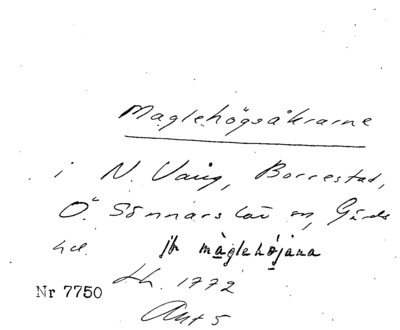 Maglehögsåkrarne
i N. Vång, Borrestad,
Ö. Sönnarslöv sn, Gärds
hd. jfr màglehö́jana
sk. 1772
Akt 5
Nr 7750